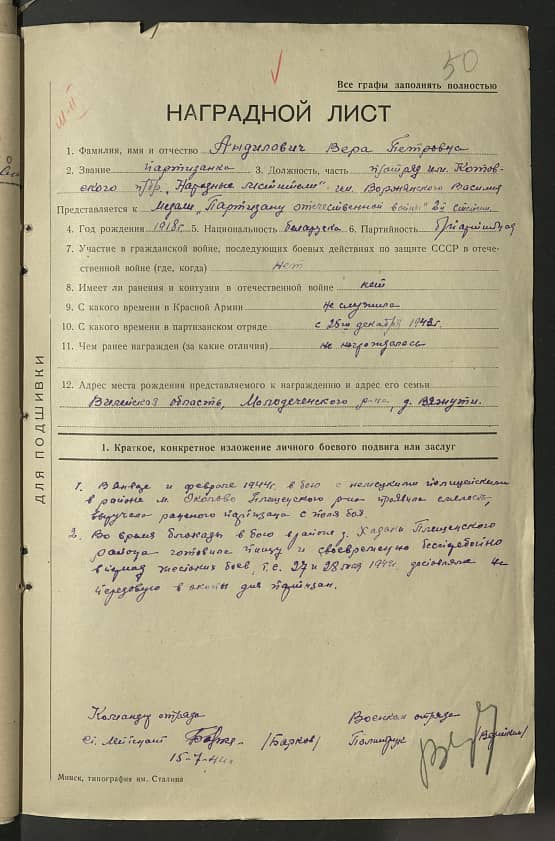 50
Все графы заполнять полностью
НАГРАДНОЙ ЛИСТ
1. Фамилия, имя и отчество Андилович Вера Петровна
2. Звание партизанка 3. Должность, часть п/отряд им. Котов-
ского п/бр. „Народные мстители" им. Воронянского Василия
Представляется к медали „Партизану отечественной войны" 2й степени
4. Год рождения 1918г. 5. Национальность беларуска 6. Партийность б/партийная
7. Участие в гражданской войне, последующих боевых действиях по защите СССР в отече-
ственной войне (где, когда) нет
8. Имеет ли ранения и контузии в отечественной войне нет
9. С какого времени в Красной Армии не служила
10. С какого времени в партизанском отряде с 25го декабря
11. Чем ранее награжден (за какие отличия) не награждалась
12. Адрес места рождения представляемого к награждению и адрес его семьи
Вилейская область, Молодеченского р-на, д.
ДЛЯ ПОДШИВКИ
1. Краткое, конкретное изложение личного боевого подвига или заслуг
1. В январе и феврале 1944г. в бою с немецкими полицейскими
в районе м. Околово Плещенского р-на проявила смелость,
выручела раненого партизана с поля боя.
2. Во время блокады в бою в районе д. Плещенского
района готовила пищу и своевременно бесперебойно
в период жестоких боев, т.е. 27 и 28 мая 1944г. доставляла на
передовую в окопы для партизан.
Командир отряда
Ст. Лейтенант /Барков/
15-7-44г.
Военком отряда
Политрук
Минск, типография им. Сталина